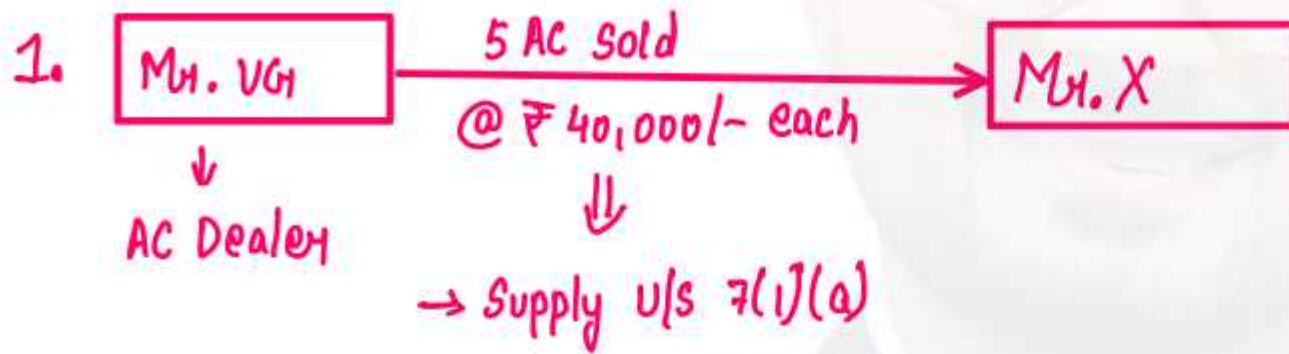 1. Mr. VG 5 AC Sold Mr. X
@ ₹ 40,000/- each
AC Dealer
→ Supply U/S 7(1)(a)